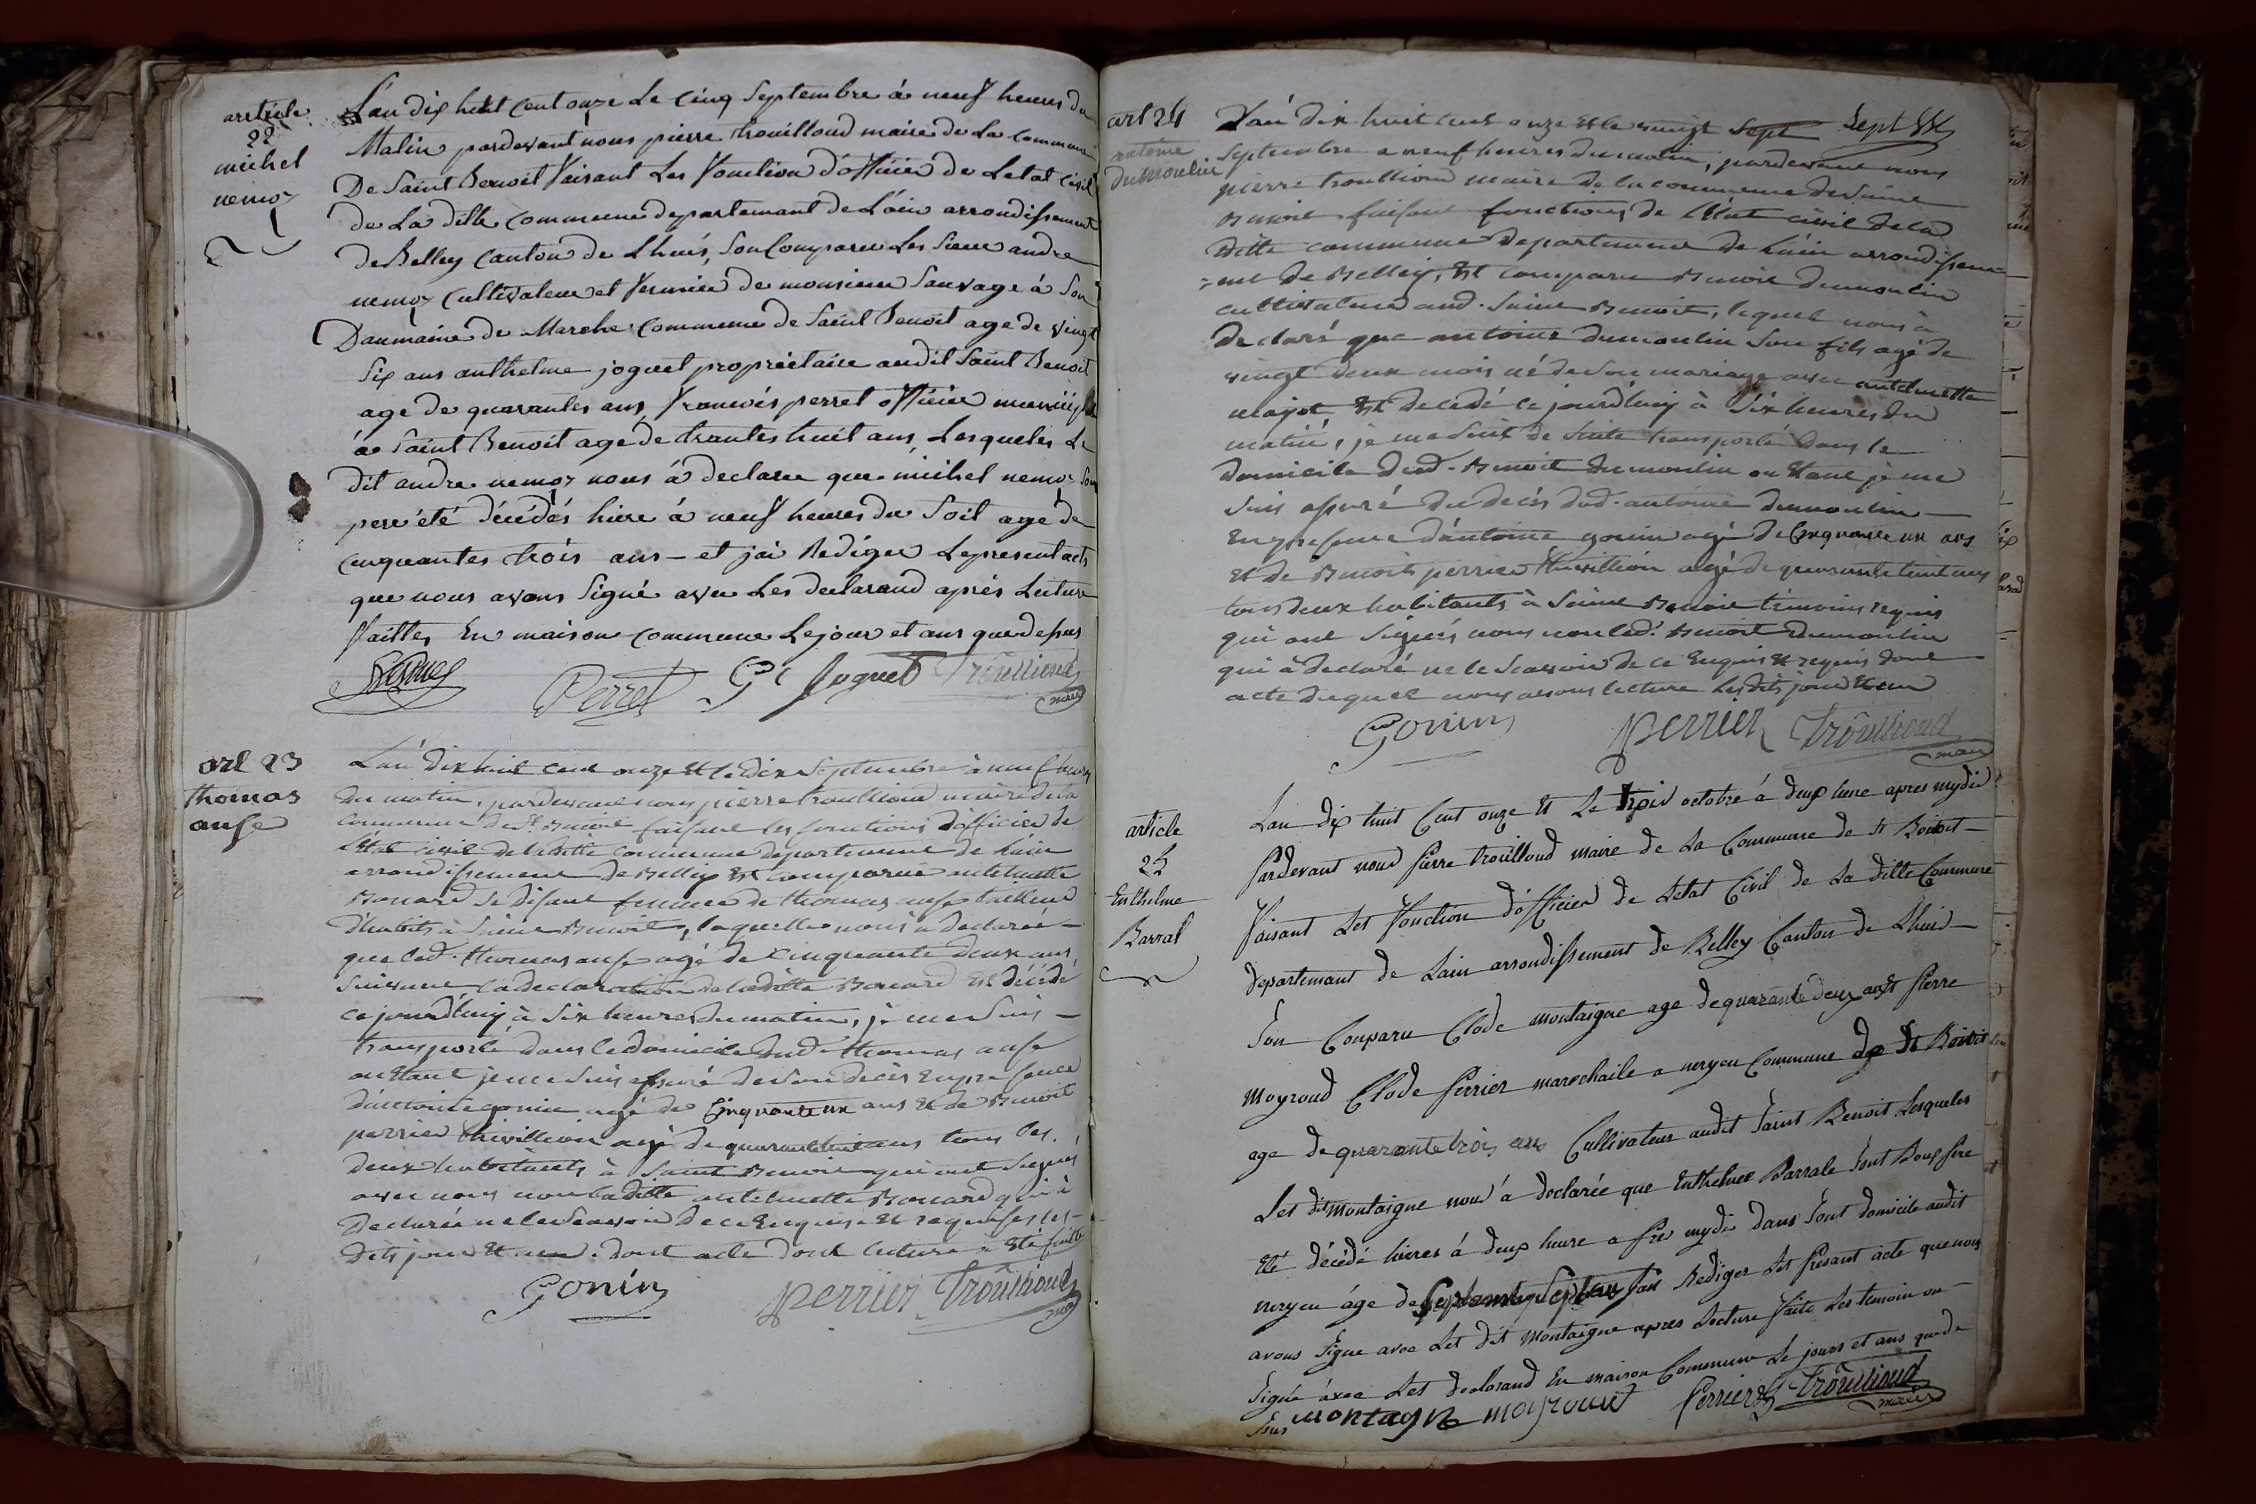 article
22
michel
nemoz
L'an dix huit cent onze Le cinq Septembre à neuf heures du
Matin pardevant nous pierre trouilloud maire de La commune
De Saint Benoit faisant Les fonction d'officier de Letat Civil
de La ditte commune departemant de L'ain arrondissement
de Belley Canton de Lhuis, Son Comparu Les Sieur andre
nemoz Cultivateur et fermier de monsieur Sauvage à Son
Daumaine de Marche Commune de Saint Benoit age de vingt
Six ans anthelme joguet propriétaire audit Saint Benoit
age de quarantes ans, francois perret officier municipal
à Saint Benoit age de trantes huit ans, Lesqueles Le
dit andre nemoz nous à declaree que michel nemoz Son
pere été décédés hiere à neuf heures du Soit age de
cinquantes trois ans – et jai Rediger Lepresent acte
que nous avons Signé avec Les declarand aprés Lecture
faittes En maison commune Lejour et ans que depus
Perret Joguet Trouilloud
maire
art 23
thomas
anse
L'an dix huit cent onze et le dix Septembre à neuf heures
du matin, pardevant nous pierre trouilloud maire de la
commune de St. Benoit faisant les fonctions d'officier de
l'état civil de la ditte commune departement de l'ain
arrondissement de Belley est comparue antelmette
Bonard se disant femme de thomas anse tailleur
d'habits à Saint Benoit, laquelle nous à declarée –
que led. thomas anse agé de Cinquante deux ans,
Suivant la declaration de la ditte Bonard est décédé
ce jourd'huy à Six heures du matin, je me Suis –
transporté dans le domicile dud. thomas anse
ou etant je me Suis assuré de son decès En presence
d'antoine gonin agé de Cinquante un ans et de Benoit
perrier thivillion agé de quarante huit ans tous les
deux habitants à Saint Benoit qui ont Signés
avec nous non la ditte antelmette Bonard qui à
Declarée ne le Scavoir de ce Enquise et requise les –
dits jour et an. dont acte dont lecture a été faitte
Gonin perrier Trouilloud
maire
art 24
antoine
dumoulin
L'an dix huit cent onze et le vingt Sept
Septembre a neuf heures du matin, pardevant nous
pierre trouilloud maire de la commune de Saint
Benoit faisant fonctions de l'état civil de la
ditte commune departement de l'ain arrondissem-
-ent de Belley, Est comparu Benoit dumoulin
cultivateur aud. Saint Benoit, lequel nous à
declaré que antoine dumoulin Son fils agé de
vingt deux mois né de Son mariage avec antelmette
mayot Est decedé ce jourd'huy à Six heures du
matin, je me Suis de Suite transporté dans le
domicile dud. Benoit dumoulin ou Etant je me
Suis assuré du decès dud. antoine dumoulin –
En presence d'antoine gonin agé de Cinquante un ans
et de Benoit perrier thivillion agé de quarante huit ans
tous deux habitants à Saint Benoit temoins requis
qui ont Signés nous non led. Benoit dumoulin
qui à declaré ne le Scavoir de ce Enquis et requis dont
acte duquel nous avons lecture lesdits jour et an
Gonin perrier Trouilloud
maire
article
25
Enthelme
Barral
Lan dix huit Cent onze et Le trois octobre á deux heure apres mydi
Pardevant nous Pierre trouilloud maire de La Commune de St Benoit –
faisant Les fonction d'officier de Letat Civil de La ditte Commune
departemant de Lain arrondissement de Belley Canton de Lhuis –
Son Comparu Clode montaigne age de quarante deux ans Pierre
moyroud Clode Perrier marechaile a Commune de St Benoit
age de quarante trois ans Cultivateur audit Saint Benoit Lesqueles
Les dit montaigne nous á declarée que Enthelme Barrale Sont Boux Pere
Eté décédé hieres á deux heure a Pres mydi dans Sont domicile audit
age de Septente Sept ans fait Rediger Les Presant acte que nous
avons Signe avec Les dit montaigne apres Lecture faite Les temoin on –
Signé avec Les declarand En maison Commune Le jours et ans que de
Sus montagne moyroud Perrier Trouilloud
maire